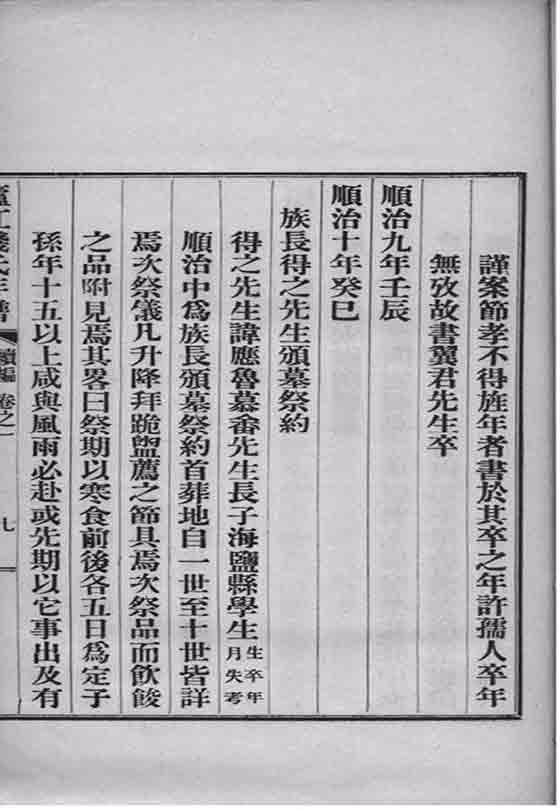 謹案節孝不得旌年者書於其卒之年許孺人卒年
無攷故書翼君先生卒
順治九年壬辰
順治十年癸巳
族長得之先生頒墓祭約
得之先生諱應魯慕畬先生長子海鹽縣學生生卒年月失考
順治中爲族長頒墓祭約首葬地自一世至十世皆詳
焉次祭儀凡升降拜跪盥薦之節具焉次祭品而飲餕
之品附見焉其畧曰祭期以寒食前後各五日爲定子
孫年十五以上咸與風雨必赴或先期以它事出及有
廬江錢氏年譜 續編 卷之一 七